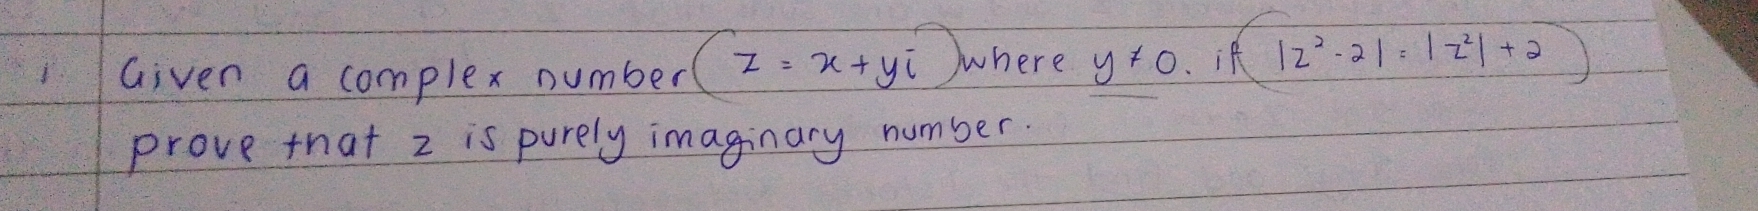 1. Given a complex number (z = x + yi) where y ≠ 0. if (|z² - 2| = |z²| + 2)
prove that z is purely imaginary number.